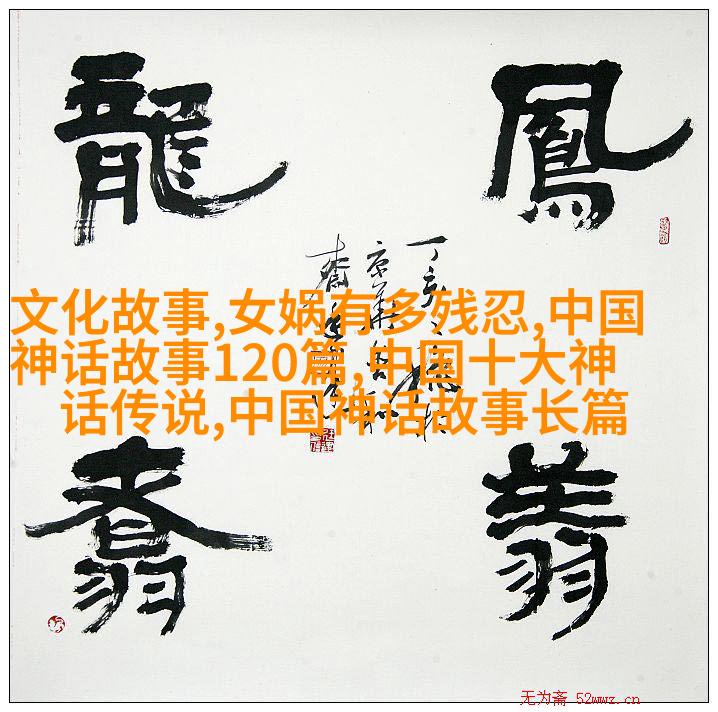 龍 鳳
文化故事,女娲有多残忍,中国
神话故事120篇,中国十大神
话传说,中国神话故事长篇
翥 翔
无为斋 52wwz.cn